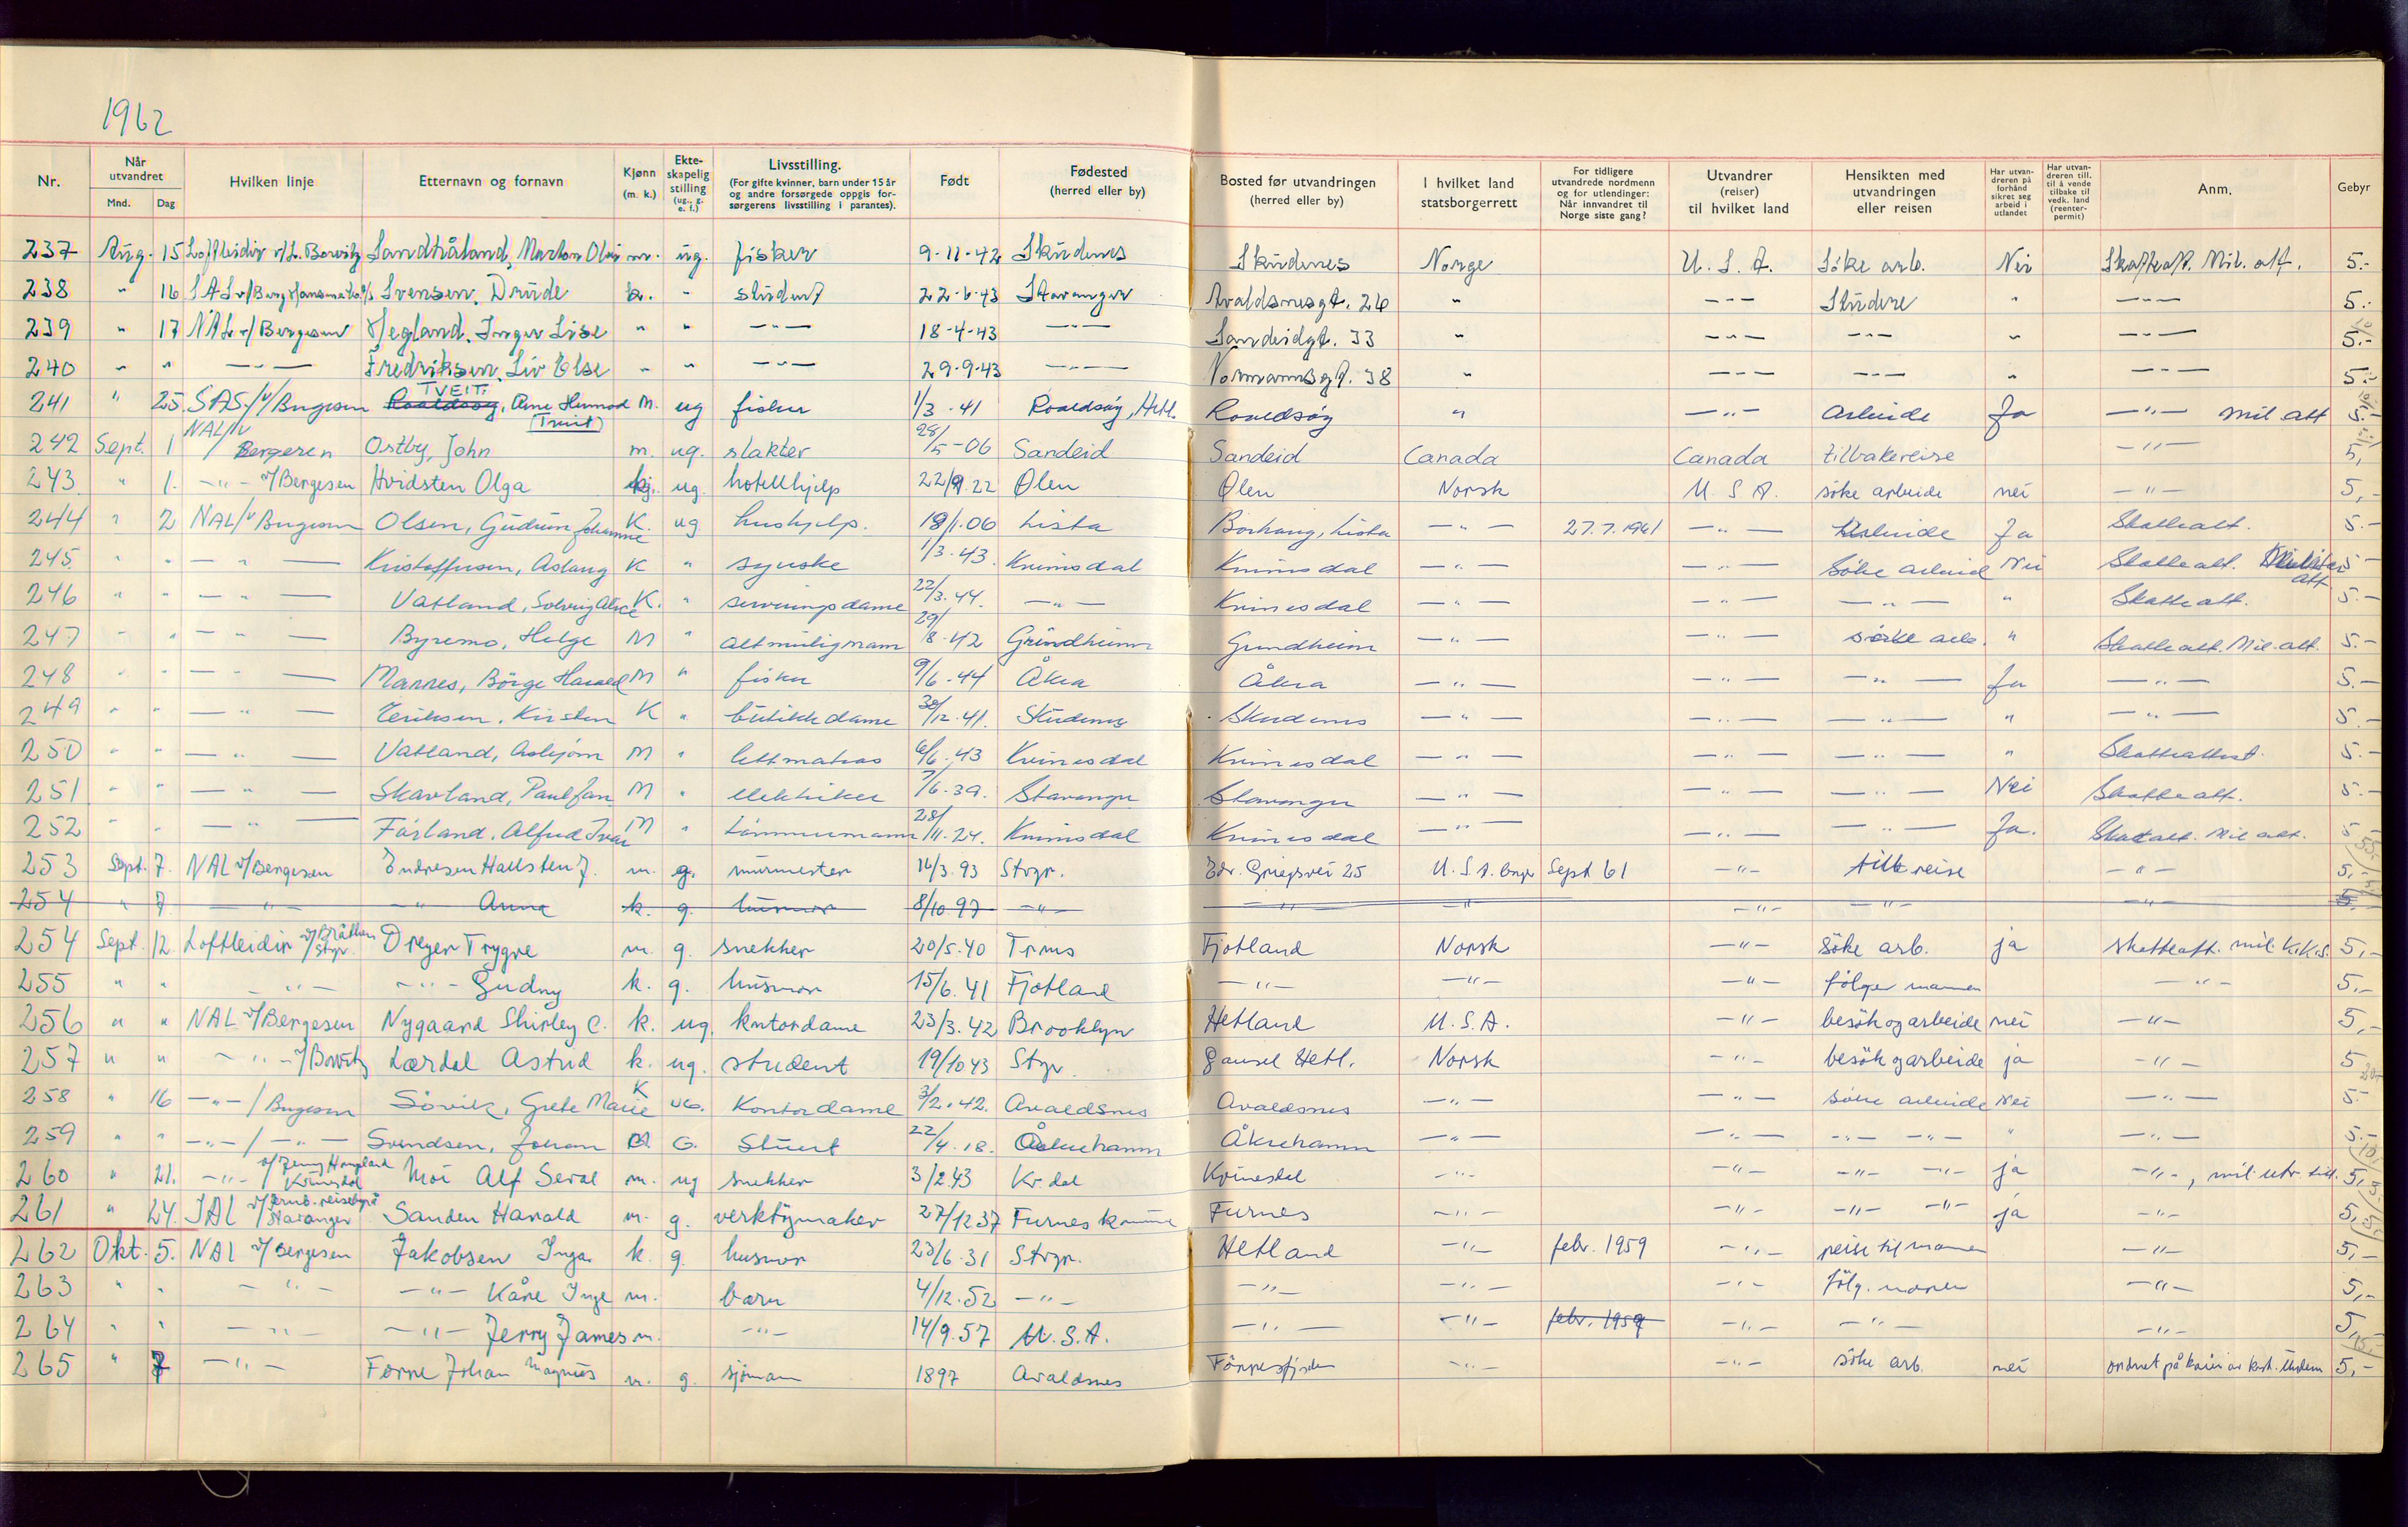 1962
Nr. Når utvandret Mnd. Dag Hvilken linje Etternavn og fornavn Kjønn (m. k.) Ekteskapelig stilling (ug., g. e. f.) Livsstilling. (For gifte kvinner, barn under 15 år og andre forsørgede oppgis forsørgerens livsstilling i parantes). Født Fødested (herred eller by) Bosted før utvandringen (herred eller by) I hvilket land statsborgerrett For tidligere utvandrede nordmenn og for utlendinger: Når innvandret til Norge siste gang? Utvandrer (reiser) til hvilket land Hensikten med utvandringen eller reisen Har utvandreren på forhånd sikret seg arbeid i utlandet Har utvandreren till. til å vende tilbake til vedk. land (reenterpermit) Anm. Gebyr
237 Aug. 15 Loftleidir v/L. Borvitz Sandhåland, Marton Olav m. ug. fisker 9-11-42 Skudenes Skudenes Norge U.S.A. Söke arb. Nei Skatteatt. Mil. att. 5.-
238 " 16 Svensen, Drude k. - student 22-6-43 Stavanger Avaldsnesgt. 26 " -"- Studere " -"- 5.-
239 " 17 NAL v/Bergesen Hegland, Inger Lise " " -"- 18-4-43 -"- Sandeidgt. 33 " -"- -"- " -"- 5.-
240 " " -"- Fredriksen, Liv Else " " -"- 29-9-43 -"- Normannsgt. 38 " -"- -"- " -"- 5.-
241 " 25 SAS v/Bergesen Roaldsøy, TVEIT. Arne Hermod (Tveit) M. ug fisker 1/3-41 Roaldsøy, Hetl. Roaldsøy " -"- Arbeide Ja -"- mil att 5.-
242 Sept. 1 NAL/v Bergesen Ostby, John m. ug. slakter 28/5-06 Sandeid Sandeid Canada Canada tilbakereise -"- 5,
243 " 1. -"- v/Bergesen Hvidsten Olga kj. ug. hotellhjelp 22/9.22 Ølen Ølen Norsk U.S.A. söke arbeide nei -"- 5,-
244 " 2 NAL/v Bergesen Olsen, Gudrun Johanne K. ug hushjelp. 18/1.06 Lista Borhaug, Lista -"- 27.7.1961 -"- Arbeide Ja Skatteatt. 5.-
245. " " -"- Kristoffersen, Aslaug K " syerske 1/3.43. Kvinesdal Kvinesdal -"- -"- Söke arbeid Nei Skatteatt. 5-
246 " " -"- Vatland, Solveig Alice K. " serveringsdame 22/3.44. -"- Kvinesdal -"- -"- -"- " Skatteatt. 5.-
247 " " -"- Byremo, Helge M " altmuligmann 29/8-42 Grindheim Grindheim -"- -"- söke arb. " Skatteatt. Mil. att. 5.-
248 " " -"- Mannes, Börge Harald M " fisker 9/6-44 Åkra Åkra -"- -"- -"- Ja -"- 5.-
249 " " -"- Eriksen, Kirsten K " butikkdame 30/12.41. Skudenes Skudenes -"- -"- -"- " -"- 5.-
250 " " -"- Vatland, Asbjørn M " lettmatros 6/6.43 Kvinesdal Kvinesdal -"- -"- -"- " Skatteattest. 5.-
251 " " -"- Skavland, Paul Jan M " elektriker 7/6-39. Stavanger Stavanger -"- -"- -"- Nei Skatteatt. 5.-
252 " " -"- Fárland, Alfred Ivar M " tömmermann 28/11.24. Kvinesdal Kvinesdal -"- -"- -"- Ja. Skatteatt. Mil att. 5-
253 Sept. 7. NAL v/Bergesen Endresen Hallsten J. m. g. murmester 14/3.93 Stvgr. Edv. Griegsvei 25 U.S.A. borger Sept 61 -"- tilb reise -"- 5,-
254 " 7 -"- -"- Anna k. g. husmor 8/10.97 -"- -"- -"- -"- -"- -"- 5,
254 Sept. 12. Loftleidir v/Bråthen Stvgr. Dreyer Trygve m. g. snekker 20/5.40 Trms Fjotland Norsk -"- söke arb. ja skatteatt. mil. K.K.S. 5,-
255 " " -"- -"- Gudny k. g. husmor 15/6.41 Fjotland -"- -"- -"- fölger mannen -"- 5,-
256 " " NAL v/Bergesen Nygaard Shirley C. k. ug. kontordame 23/3.42 Brooklyn Hetland U.S.A. -"- besök og arbeide nei -"- 5,-
257 " " -"- v/Borvitz Lærdal Astrid k. ug. student 19/10 43 Stvgr. Gausel Hetl. Norsk -"- besök og arbeide ja -"- 5
258 " 16 -"-/Bergesen Sövik, Grete Marie K UG. Kontordame 3/2.42. Avaldsnes Avaldsnes -"- -"- söke arbeide Nei -"- 5.-
259 " " -"-/-"- Svendsen, Johan M. G. Stuert 22/4.18. Åkrehamn Åkrehamn -"- -"- -"- -"- " -"- 5.-
260 " 21. -"- v/Jenny Haugland Kvinesdal Moi Alf Seval m. ug snekker 3/2.43 Kv.dal Kvinesdal -"- -"- -"- -"- ja -"-, mil. utr. till. 5,
261 " 24. SAL v/Jernb. reisebyrå Stavanger Sanden Harald m. g. verktöymaker 27/12 37 Furnes komune Furnes -"- -"- -"- -"- ja -"- 5,
262 Okt. 5. NAL v/Bergesen Jakobsen Inga k. g. husmor 23/6.31 Stvgr. Hetland -"- febr. 1959 -"- reise til mannen -"- 5,-
263 " " -"- -"- Kåre Inge m. barn 4/12.52 -"- -"- -"- -"- fölg. moren -"- 5,-
264 " " -"- -"- Jerry James m. -"- 14/9.57 U.S.A. -"- -"- febr. 1959 -"- -"- -"- 5,
265 " 7 -"- Førre Johan Magnus m. g. sjömann 1897 Avaldsnes Förresfjorden -"- -"- söke arb. nei ordnet på kaien av 5,-